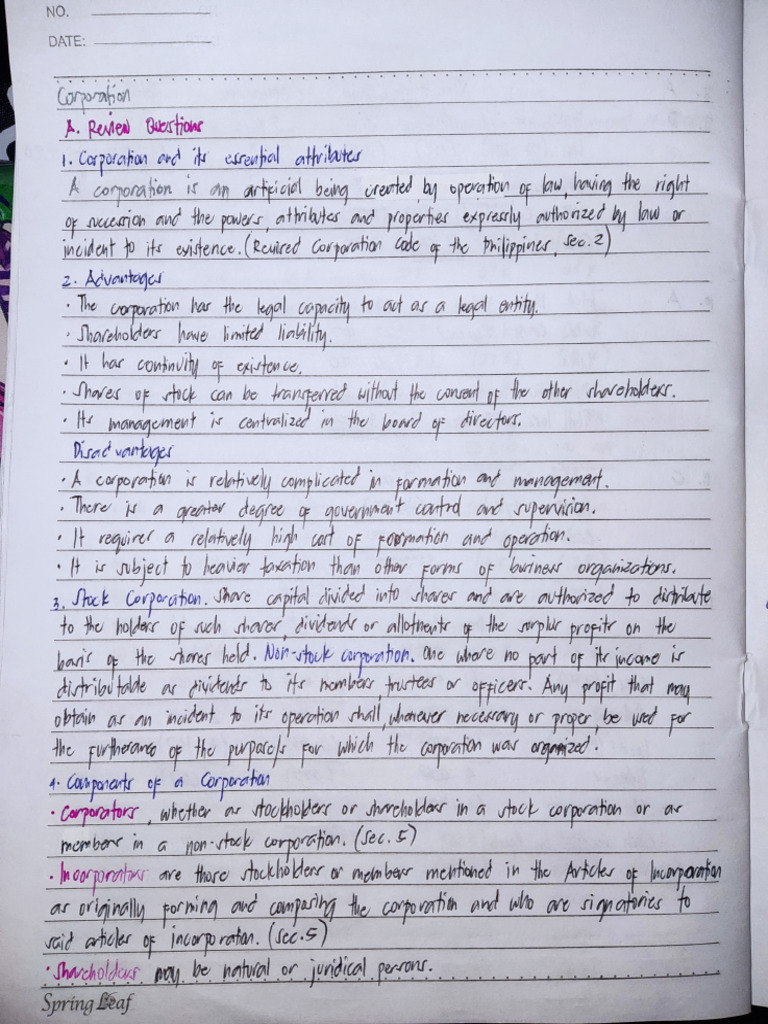 NO.
DATE:
Corporation
A. Review Questions
1. Corporation and its essential attributes
A corporation is an artificial being created by operation of law, having the right
of succession and the powers, attributes and properties expressly authorized by law or
incident to its existence. (Revised Corporation Code of the Philippines, Sec. 2)
2. Advantages
· The corporation has the legal capacity to act as a legal entity.
· Shareholders have limited liability.
· It has continuity of existence.
· Shares of stock can be transferred without the consent of the other shareholders.
· Its management is centralized in the board of directors.
Disadvantages
· A corporation is relatively complicated in formation and management.
· There is a greater degree of government control and supervision.
· It requires a relatively high cost of formation and operation.
· It is subject to heavier taxation than other forms of business organizations.
3. Stock Corporation. Share capital divided into shares and are authorized to distribute
to the holders of such shares, dividends or allotments of the surplus profits on the
basis of the shares held. Non-stock corporation. One where no part of its income is
distributable as dividends to its members trustees or officers. Any profit that may
obtain as an incident to its operation shall, whenever necessary or proper, be used for
the furtherance of the purpose/s for which the corporation was organized.
4. Components of a Corporation
· Corporators, whether as stockholders or shareholders in a stock corporation or as
members in a non-stock corporation. (Sec. 5)
· Incorporators are those stockholders or members mentioned in the Articles of Incorporation
as originally forming and composing the corporation and who are signatories to
said articles of incorporation. (Sec. 5)
· Shareholders may be natural or juridical persons.
Spring Leaf